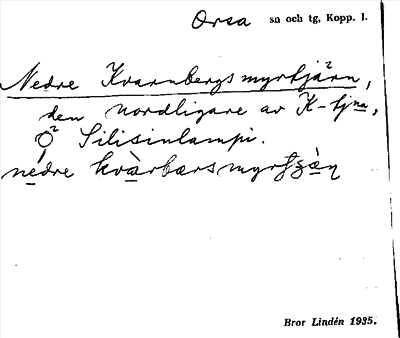 Orsa sn och tg, Kopp. l.
Nedre Kvarnbergsmyrtjärn,
den nordligare av K-tjna,
Silisinlampi.
nedre kvàrbærsmyrtʃæ̀n
Bror Lindén 1935.